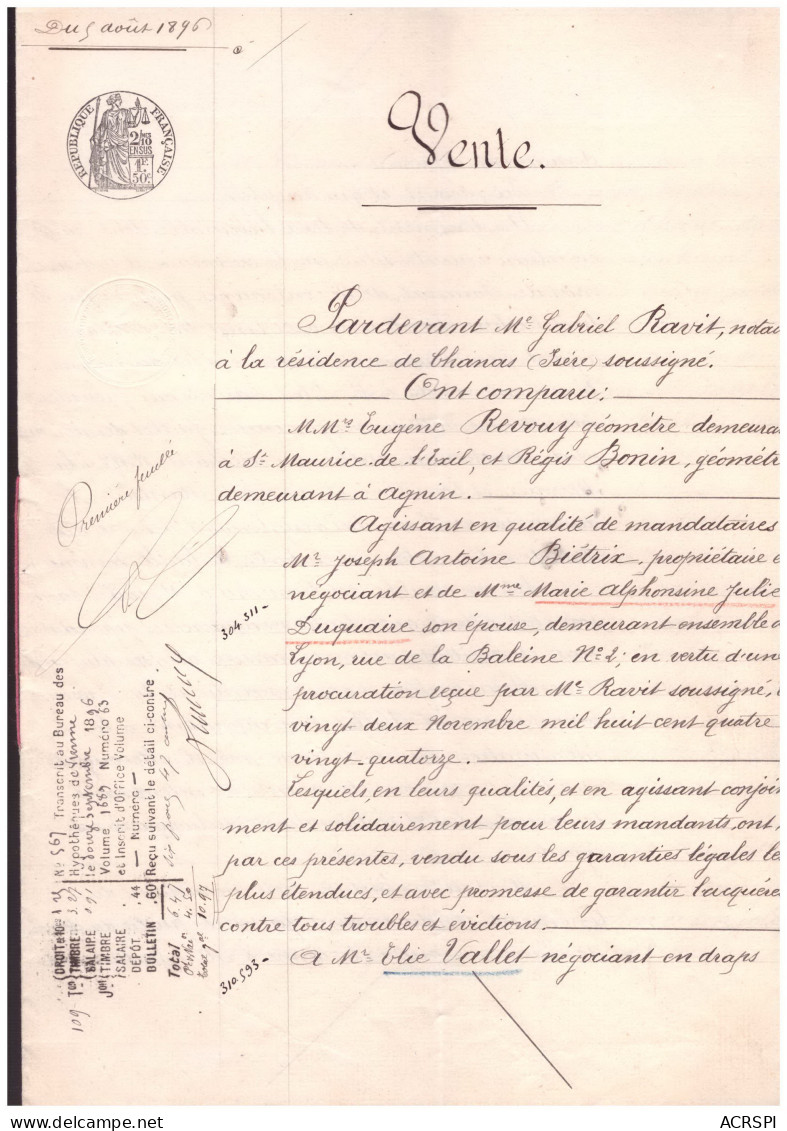 Du 5 août 1896
RÉPUBLIQUE FRANÇAISE
2/10
EN SUS
1F.
50c.
Vente.
Pardevant Me Gabriel Ravit, notai
à la résidence de Chanas (Isère) soussigné.
Ont comparu:
MMrs Eugène Revouy géomètre demeura
à St Maurice-de-l'Exil, et Régis Bonin, géomètr
demeurant à Agnin.
Agissant en qualité de mandataires
Mr Joseph Antoine Biétrix, propriétaire e
négociant et de Mme Marie Alphonsine Julie
Duguaire son épouse, demeurant ensemble
Lyon, rue de la Baleine No 2; en vertu d'une
procuration reçue par Me Ravit soussigné,
vingt deux Novembre mil huit cent quatre
vingt-quatorze.
Lesquels, en leurs qualités, et en agissant conjoin
ment et solidairement pour leurs mandants, ont,
par ces présentes, vendu sous les garanties légales le
plus étendues, et avec promesse de garantir l'acquére
contre tous troubles et évictions.
A Mr Elie Vallet négociant en draps
Première feuille
304.511-
310.593-
No 567 Transcrit au Bureau des
Hypothèques de Vienne
le douze Septembre 1896
Volume 1689 Numéro 63
et Inscrit d'Office Volume
— Numéro —
Reçu suivant le détail ci-contre
TIMBRE 3.27
SALAIRE
TIMBRE
SALAIRE
DÉPÔT .44
BULLETIN .60
Total 6.47
4.50
10.97
109
ACRSPI